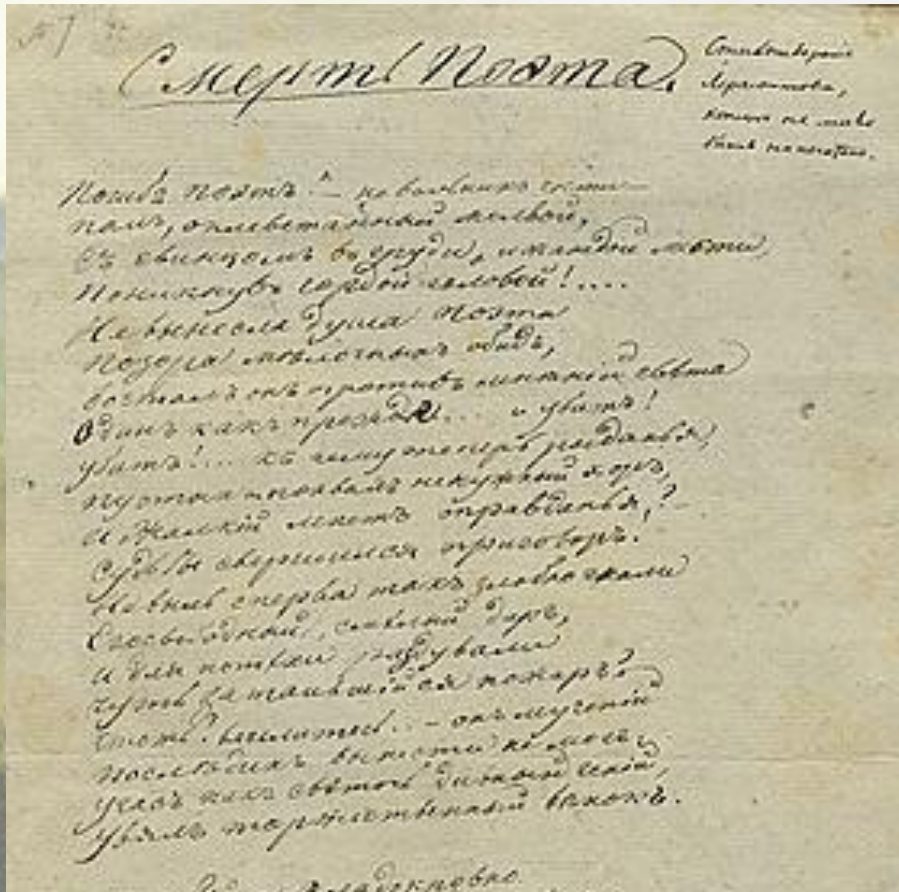 Смерть Поэта.
Стихотворение
Лермонтова,
Погибъ Поэтъ! – невольникъ чести –
палъ, оклеветанный молвой,
Съ свинцомъ въ груди, и жаждой мести,
Поникнувъ гордой головой!....
Не вынесла душа Поэта
Позора мѣлочныхъ обидъ,
возсталъ онъ противъ мнѣній свѣта
Одинъ какъ прежде.... и убитъ!
убитъ!.... къ чему теперь рыданья,
пустыхъ похвалъ ненужный хоръ,
И жалкій лепетъ оправданья,?
судьбы свершился приговоръ.
Не вы ль сперва такъ злобно гнали
Его свободный, смѣлый даръ,
и для потѣхи раздували
чуть затаившійся пожаръ?
чтожъ? веселитесь.. – онъ мученій
послѣднихъ вынести не могъ,
угасъ какъ свѣточь дивный геній,
увялъ торжественный вѣнокъ.
хладнокровно